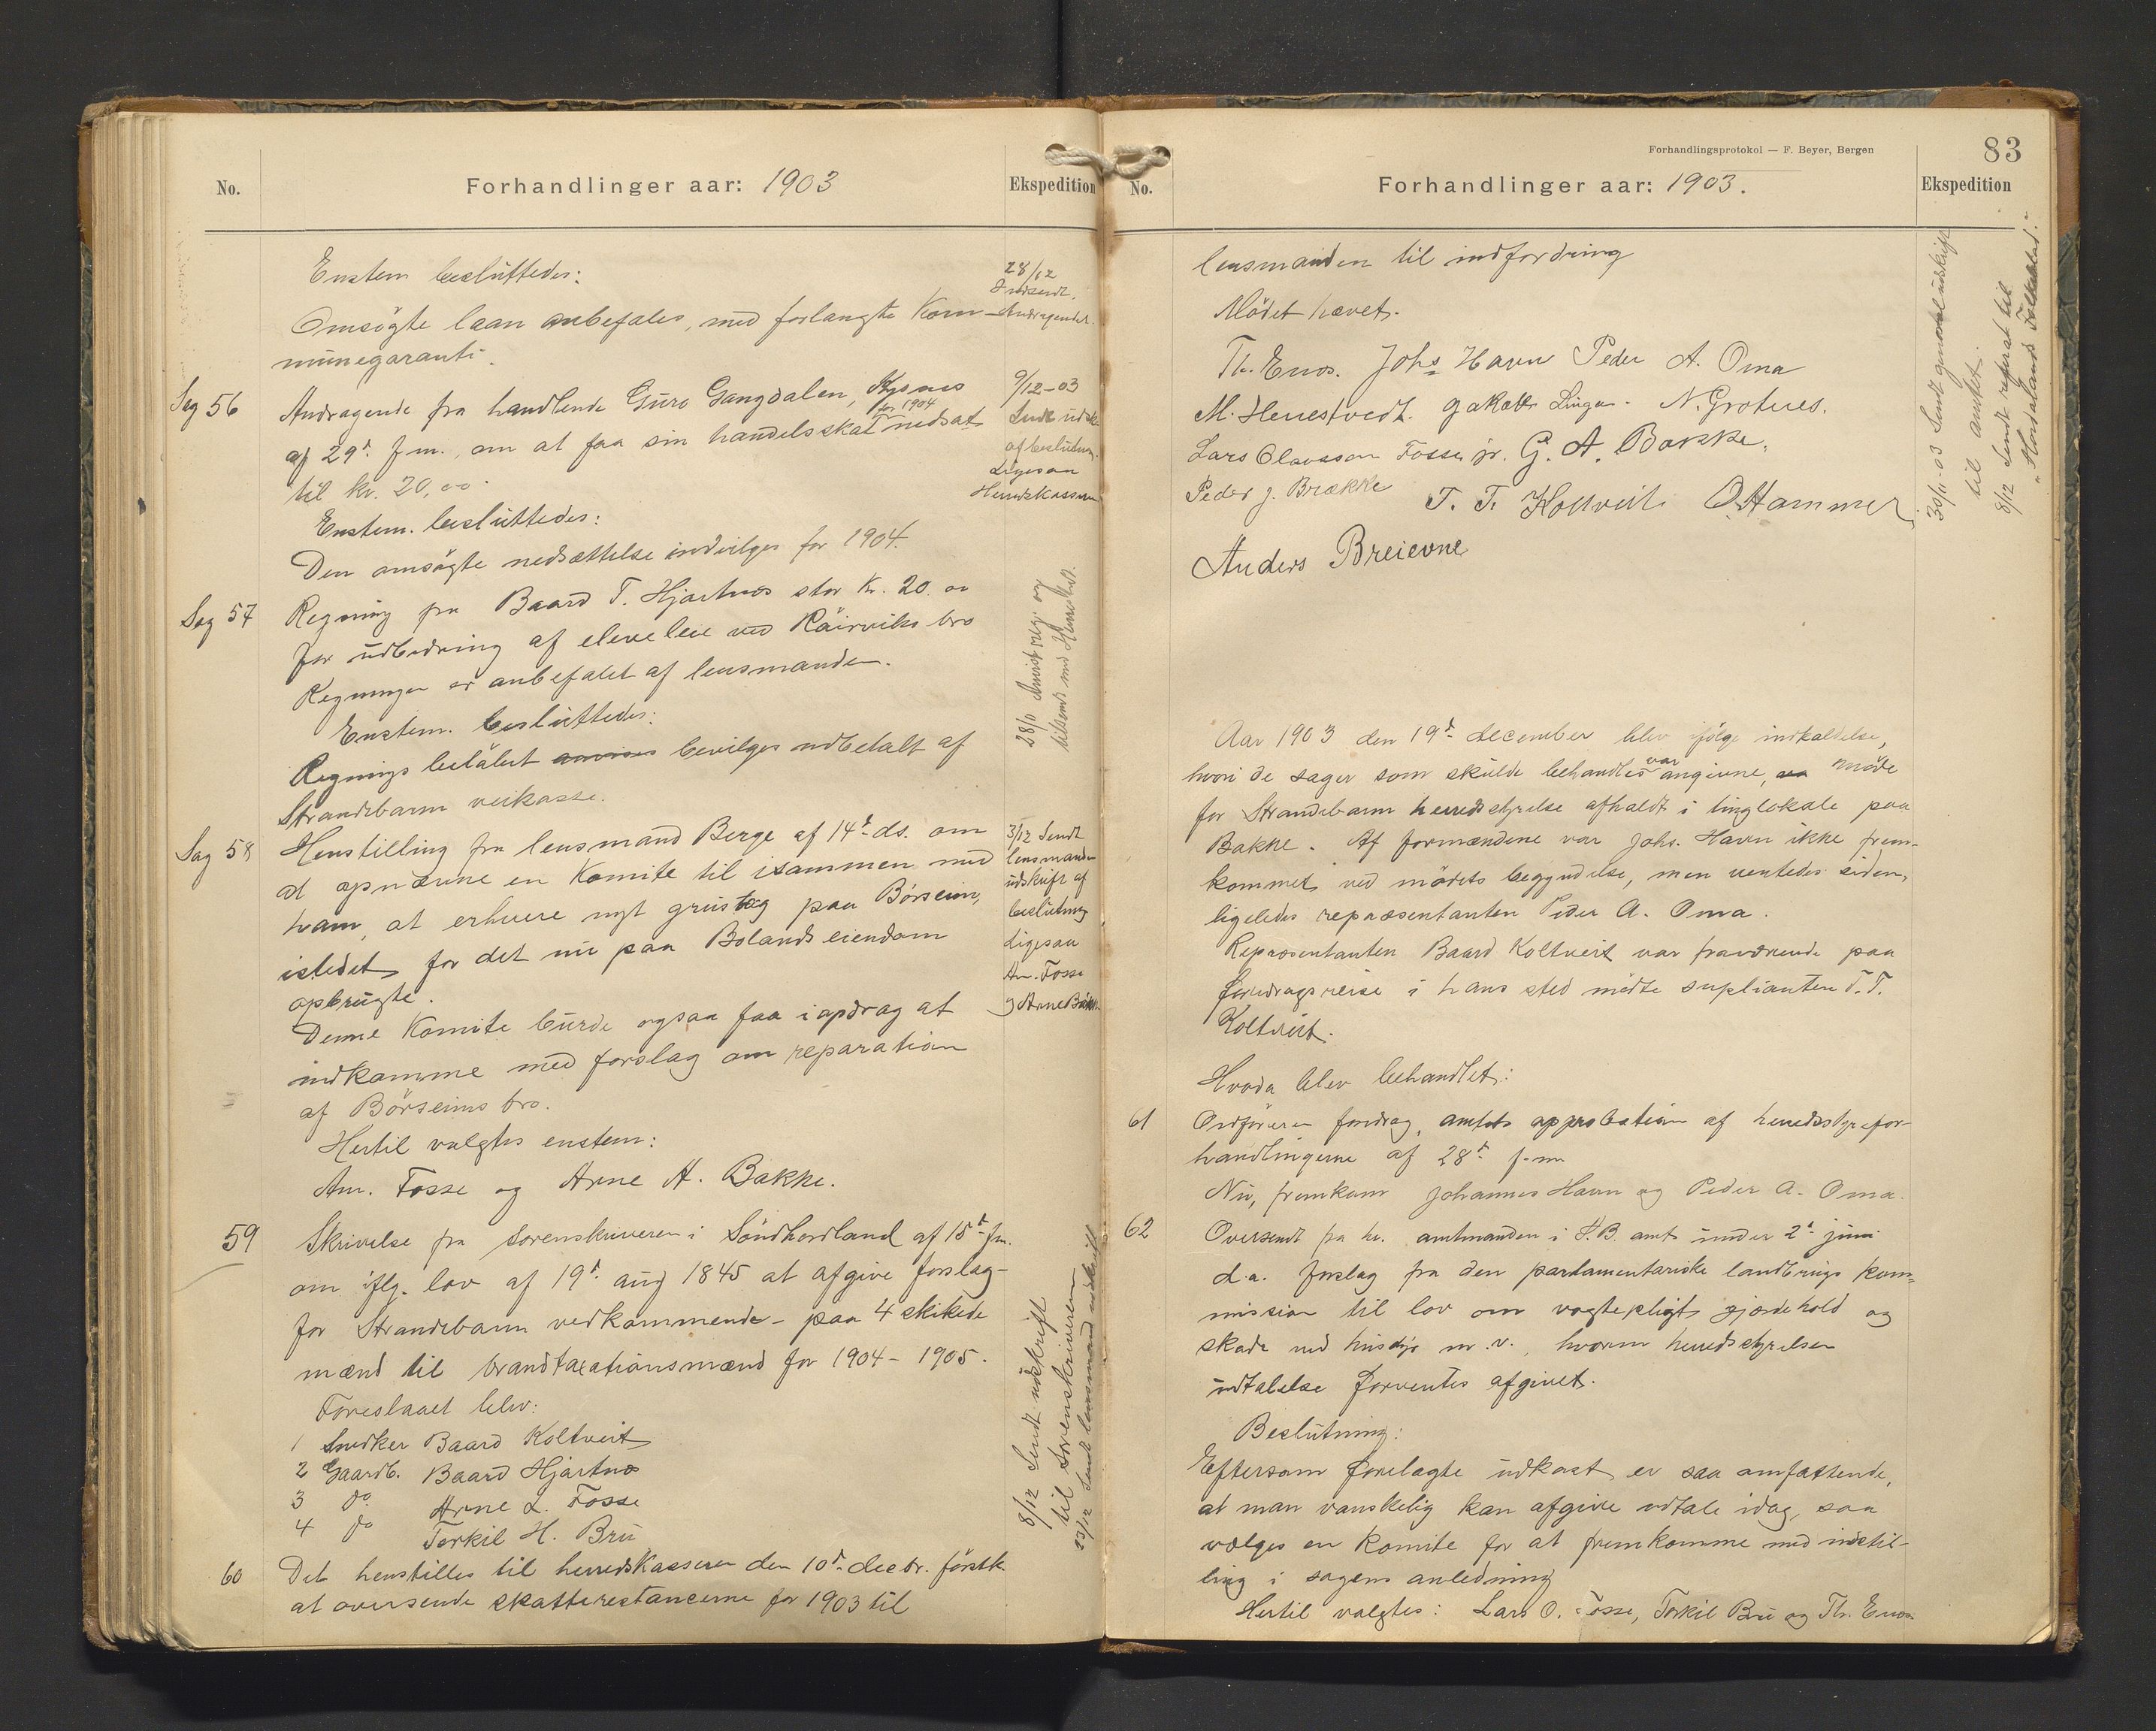 No.
Forhandlinger aar: 1903
Ekspedition
Enstem besluttedes:
Omsögte laan anbefales, med forlangte Kom-
munegaranti.
28/12
Indsendt
Andragendet
Sag 56
Andragende fra handlende Guro Gangdalen, Kysnes
af 29d. f.m., om at faa sin handelsskat for 1904 nedsat
til kr. 20,00.
Enstem. besluttedes:
Den omsögte nedsættelse indvilges for 1904.
9/12-03
Sendt udsk.
af beslutn.
Ligesaa
Herredskasseren
Sag 57
Regning fra Baard T. Hjartnes stor Kr. 20.00
for udbedring af elveleie ved Räirviks bro
Regningen er anbefalet af lensmanden.
Enstem. besluttedes:
Regnings belöbet anvises bevilges udbetalt af
Strandebarm veikasse.
Sag 58
Henstilling fra lensmand Berge af 14d. ds. om
at opnævne en Komite til isammen med
ham, at erhverve nyt grustag paa Börseim,
istedet for det nu paa Bolands eiendom
opbrugte.
Denne Komite burde ogsaa faa i opdrag at
indkomme med forslag om reparation
af Börseims bro.
Hertil valgtes enstem:
Am. Fosse og Arne A. Bakke.
3/12 Sendt
lensmanden
udskrift af
beslutning
Ligesaa
Am. Fosse
og Arne Bakke
59
Skrivelse fra sorenskriveren i Söndhordland af 15d. f.m.
om iflg. lov af 19d. aug 1845 at afgive forslag-
for Strandebarm vedkommende- paa 4 skikede
mænd til brandtaxationsmænd for 1904-1905.
Foreslaaet blev:
1 Snedker Baard Koltveit
2 Gaardb. Baard Hjartnes
3 do Arne L. Fosse
4 do Torkil H. Bru
8/12 Sendt udskrift
til sorenskriveren
23/12 Sendt lensmand udskrift
60
Det henstilles til herredskasseren den 10d. decbr. förstk.
at oversende skatterestancerne for 1903 til
Forhandlingsprotokol — F. Beyer, Bergen
83
No.
Forhandlinger aar: 1903.
Ekspedition
lensmanden til indfordring
Mödet hævet.
Th. Enes. Johs Havn Peder A. Oma
M. Herrestvedt. Jakob Linga. N. Grotnes.
Lars Olavsson Fosse jr. G. A. Bakke.
Peder J. Brække T. T. Koltveit O Hammer
Anders Breievne
30/11-03 Sendt udskrift
til amtet.
8/12 Sendt referat til
"Hordalands Folkeblad."
Aar 1903 den 19d. december blev ifölge indkaldelse,
hvori de sager som skulde behandles var angivne, möde
for Strandebarm herredsstyrelse afholdt i tinglokale paa
Bakke. Af formændene var Johs. Havn ikke frem-
kommet ved mödets begyndelse, men ventedes siden,
ligeledes repræsentanten Peder A. Oma.
Repræsentanten Baard Koltveit var fraværende paa
foredragsreise i hans sted mödte suplianten T. T.
Koltveit.
Hvoda blev behandlet:
61
Ordföreren foredrog, amtets approbation af herredsstyrefor-
handlingerne af 28d. f.m
Nu, fremkom Johannes Havn og Peder A. Oma.
62
Oversendt fra hr. amtmanden i S.B. amt under 2d juni
d.a. forslag fra den parlamentariske landbrugs kom-
mission til lov om vogtepligt, gjærdehold og
skade ved husdyr m.v., hvorom herredsstyrelsen
udtalelse forventes afgivet.
Beslutning:
Eftersom forelagte udkast er saa omfattende,
at man vanskelig kan afgive udtale idag, saa
vælges en komite for at fremkomme med indstil-
ling i sagens anledning
Hertil valgtes: Lars O. Fosse, Torkil Bru og Th. Enes.